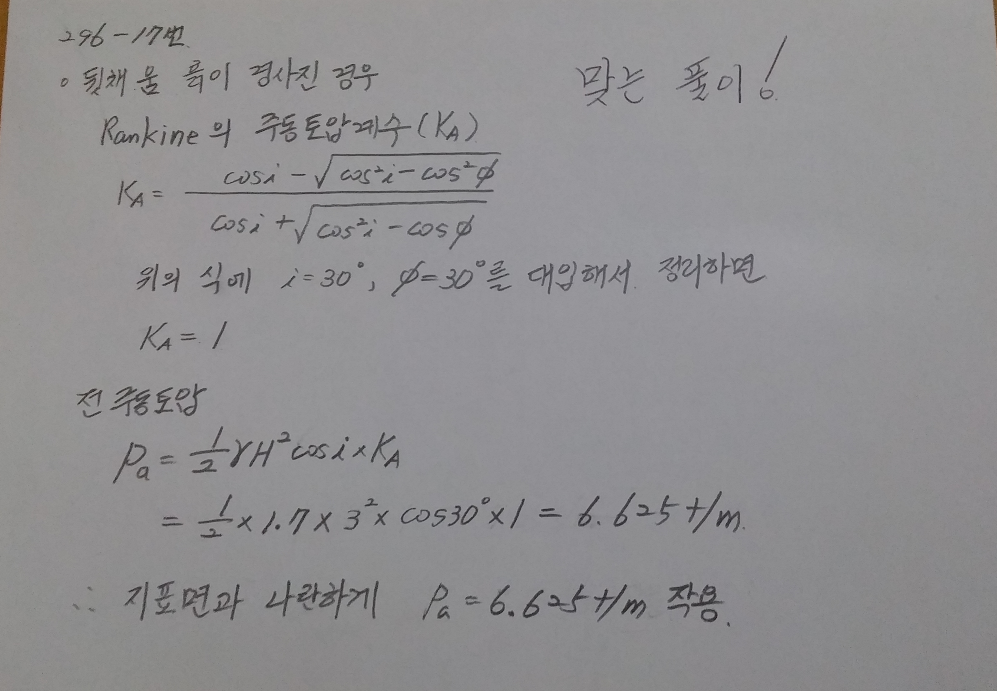 296-17번
맞는 풀이!
◦ 뒷채움 흙이 경사진 경우
Rankine의 주동토압계수(KA)
KA = (cosi - √(cos²i - cos²φ)) / (cosi + √(cos²i - cosφ))
위의 식에 i=30°, φ=30°를 대입해서 정리하면
KA = 1
전 주동토압
Pa = 1/2 γH² cosi × KA
= 1/2 × 1.7 × 3² × cos30° × 1 = 6.625 t/m
∴ 지표면과 나란하게 Pa = 6.625 t/m 작용.